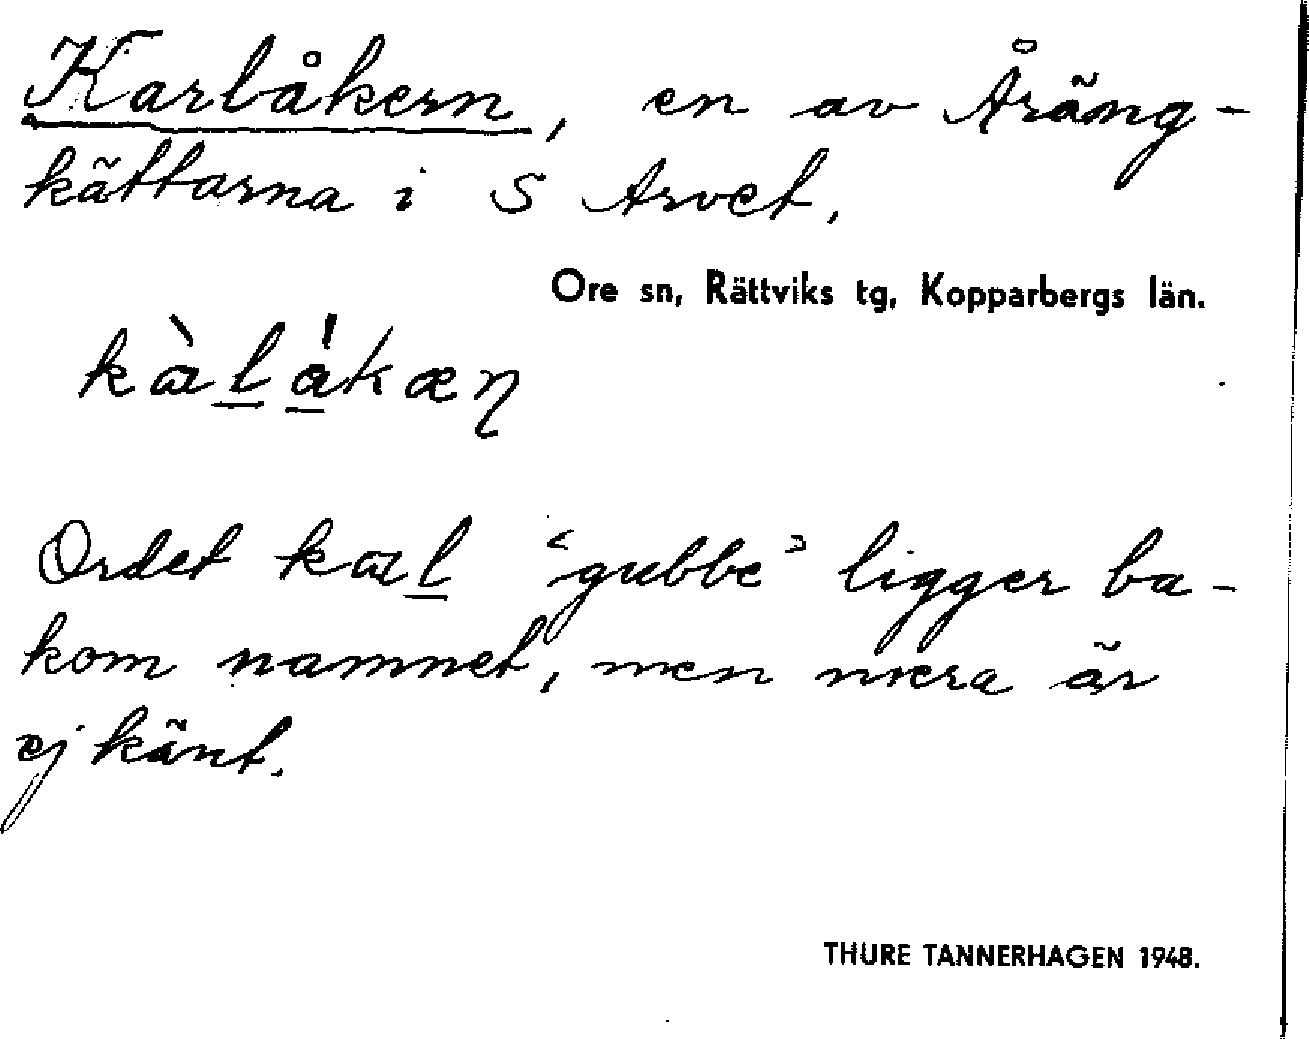 Karlåkern, en av Åräng-
kättarna i S Arvet.
Ore sn, Rättviks tg, Kopparbergs län.
Ordet kal̲ "gubbe" ligger ba-
kom namnet, men mera är
ej känt.
THURE TANNERHAGEN 1948.